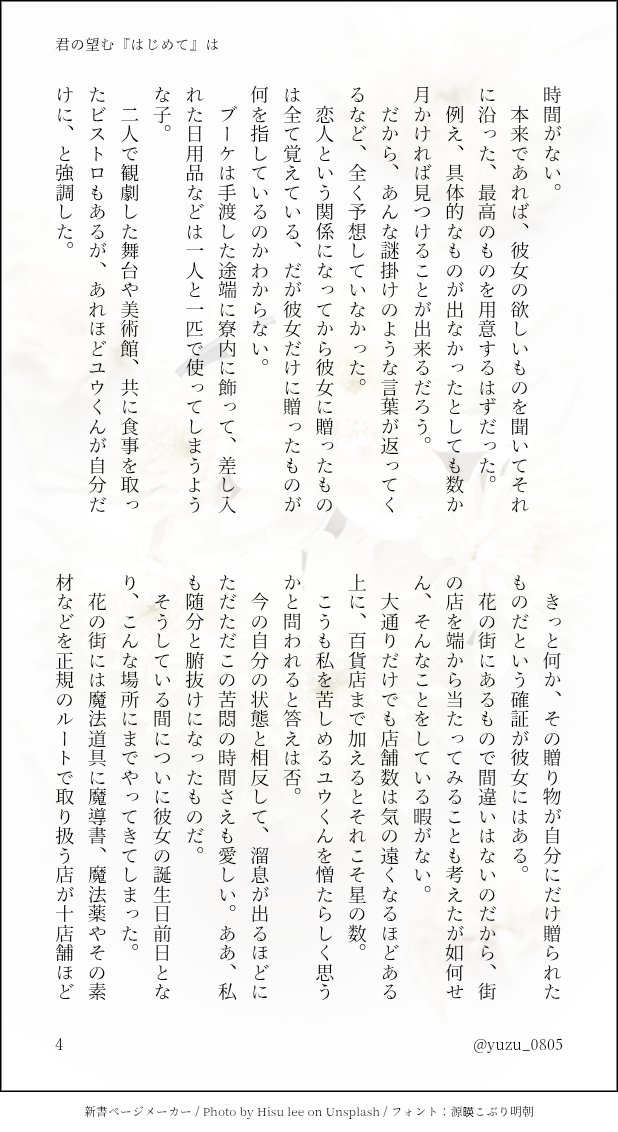 君の望む『はじめて』は
時間がない。
　本来であれば、彼女の欲しいものを聞いてそれ
に沿った、最高のものを用意するはずだった。
　例え、具体的なものが出なかったとしても数か
月かければ見つけることが出来るだろう。
　だから、あんな謎掛けのような言葉が返ってく
るなど、全く予想していなかった。
　恋人という関係になってから彼女に贈ったもの
は全て覚えている、だが彼女だけに贈ったものが
何を指しているのかわからない。
　ブーケは手渡した途端に寮内に飾って、差し入
れた日用品などは一人と一匹で使ってしまうよう
な子。
　二人で観劇した舞台や美術館、共に食事を取っ
たビストロもあるが、あれほどユウくんが自分だ
けに、と強調した。
　きっと何か、その贈り物が自分にだけ贈られた
ものだという確証が彼女にはある。
　花の街にあるもので間違いはないのだから、街
の店を端から当たってみることも考えたが如何せ
ん、そんなことをしている暇がない。
　大通りだけでも店舗数は気の遠くなるほどある
上に、百貨店まで加えるとそれこそ星の数。
　こうも私を苦しめるユウくんを憎たらしく思う
かと問われると答えは否。
　今の自分の状態と相反して、溜息が出るほどに
ただただこの苦悶の時間さえも愛しい。ああ、私
も随分と腑抜けになったものだ。
　そうしている間についに彼女の誕生日前日とな
り、こんな場所にまでやってきてしまった。
　花の街には魔法道具に魔導書、魔法薬やその素
材などを正規のルートで取り扱う店が十店舗ほど
4
@yuzu_0805
新書ページメーカー / Photo by Hisu lee on Unsplash / フォント：源暎こぶり明朝